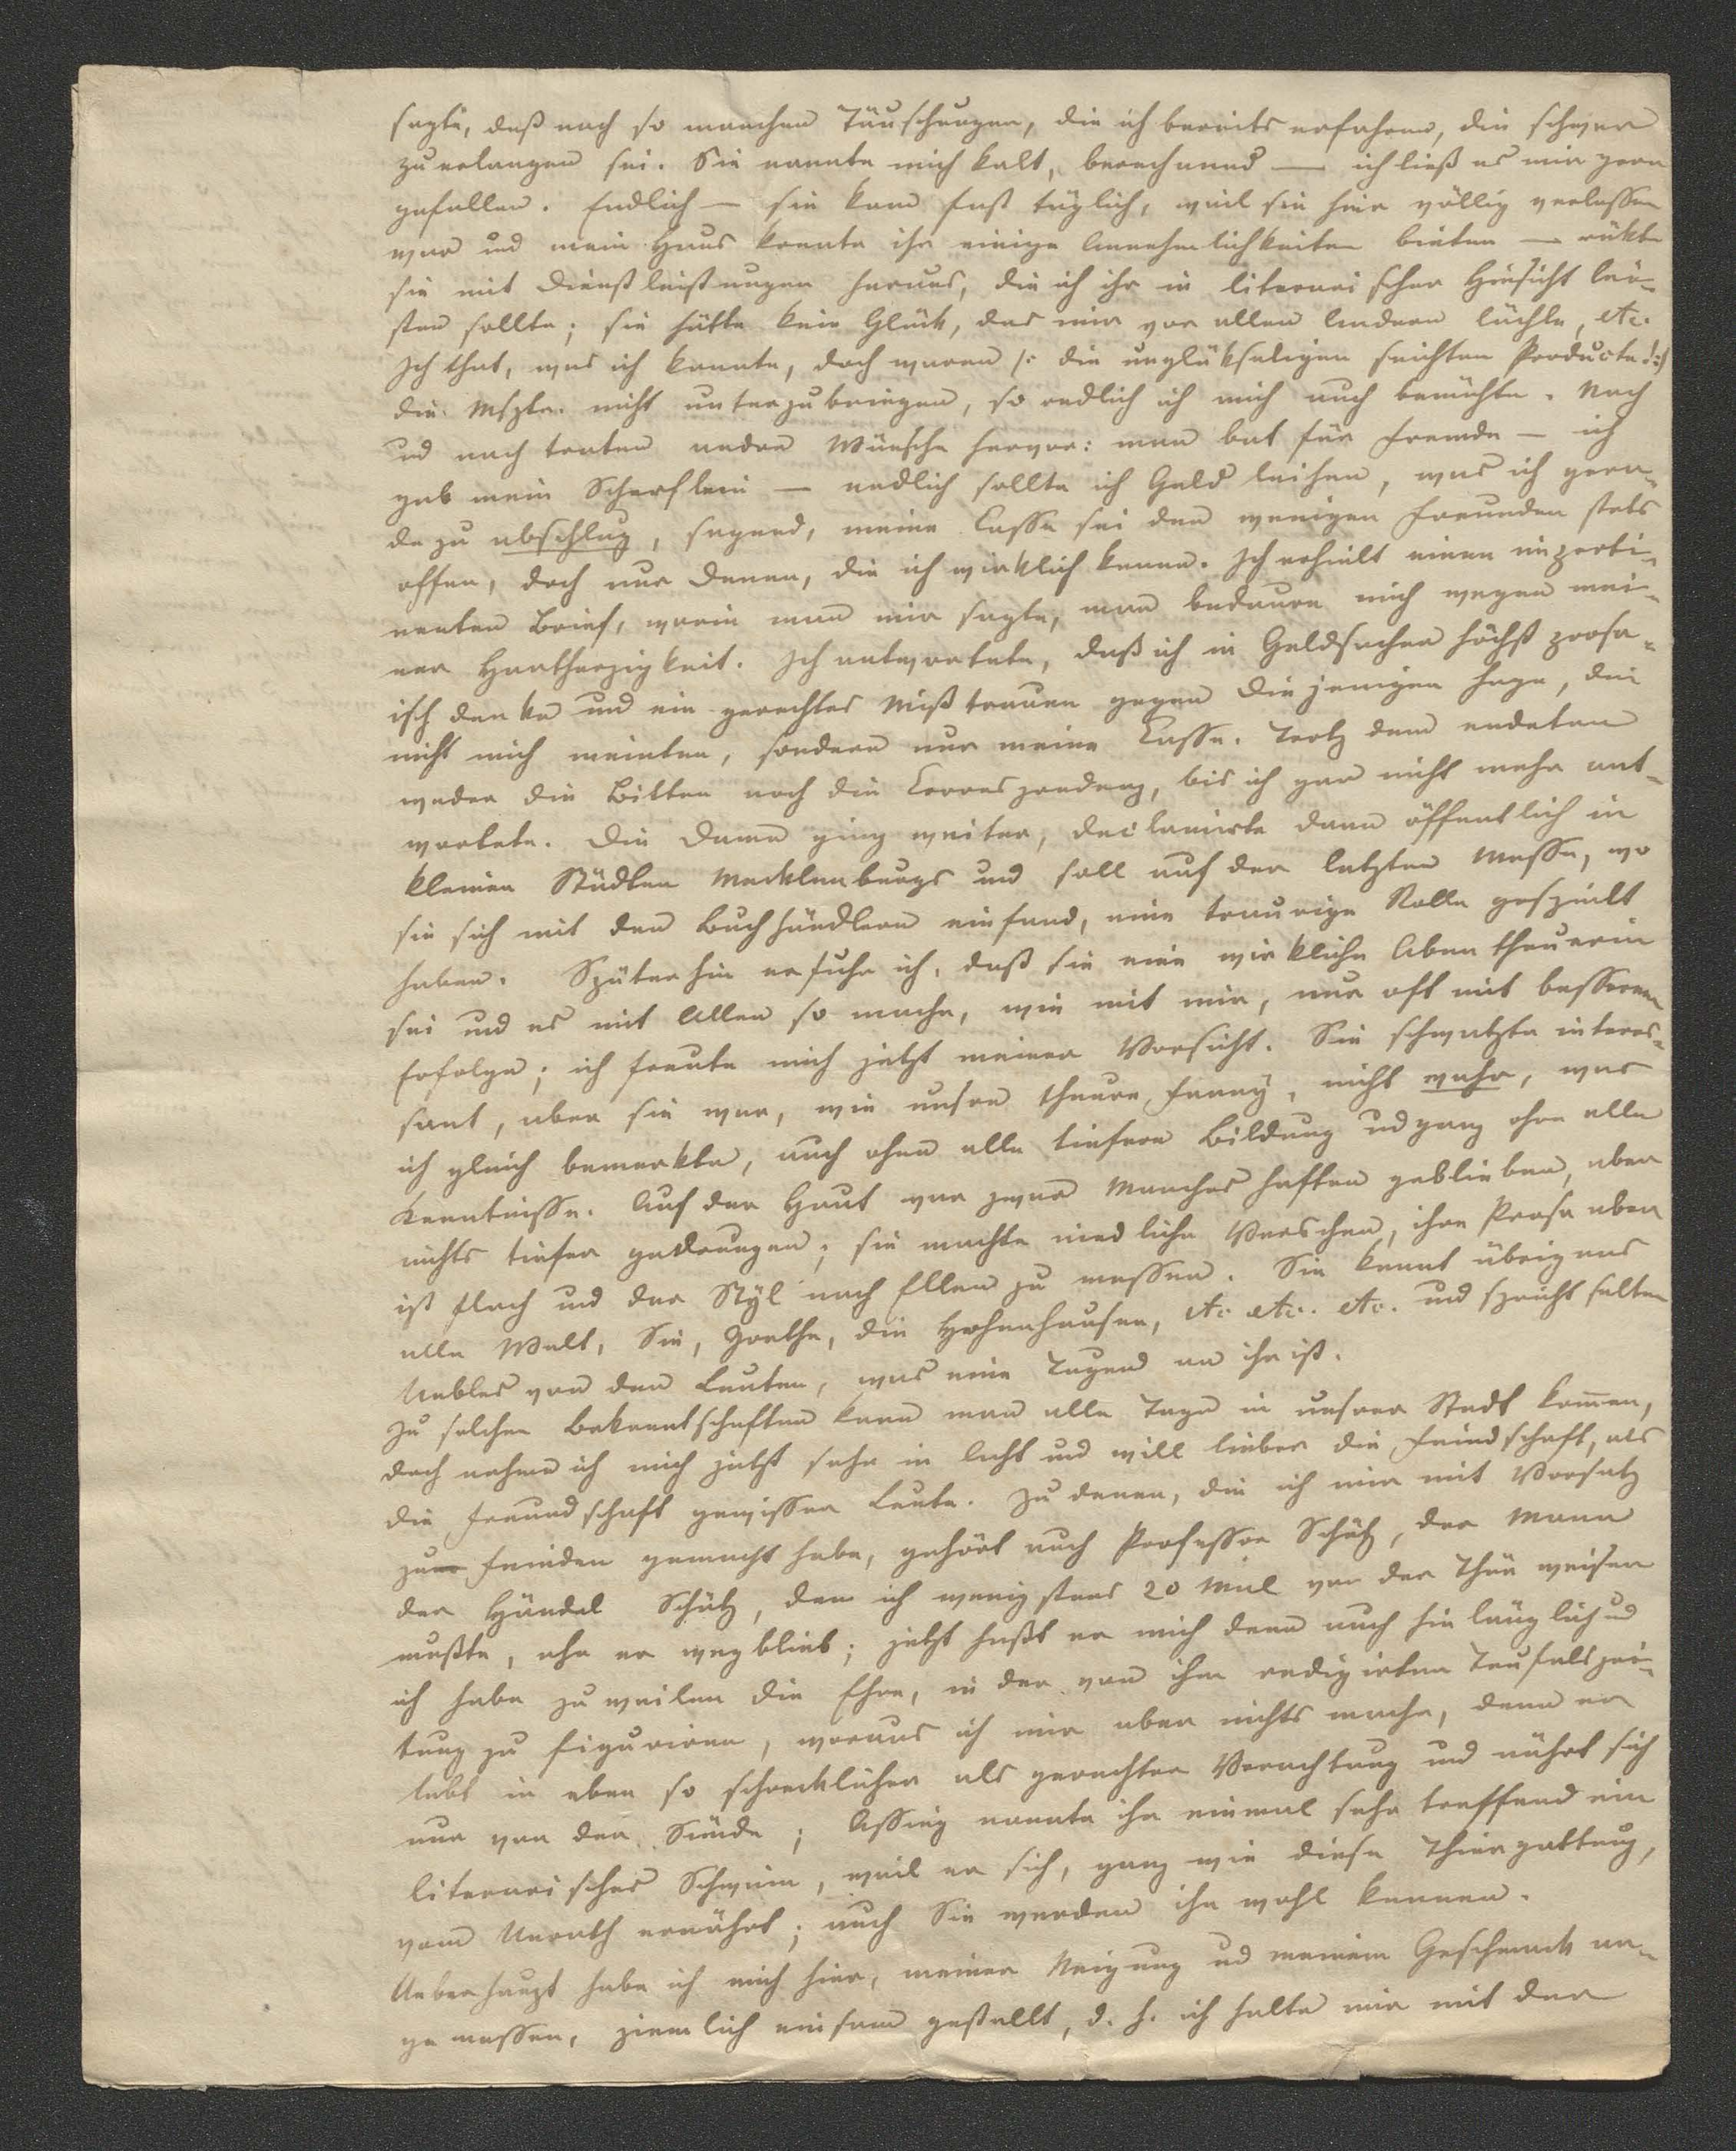 sagte, daß nach so manchen Täuschungen, die ich bereits erfahren, die schwer
zu erlangen sei. Sie nannte mich kalt, berechnend — ich ließ es mir gern
gefallen. Endlich — sie kam fast täglich, weil sie hier völlig verlassen
war und mein Haus konnte ihr einige Annehmlichkeiten bieten — rükte
sie mit Dienstleistungen heraus, die ich ihr in literarischer Hinsicht lei-
sten sollte; sie hätte kein Glück, das mir vor allen Andern lächle, etc.
Ich that, was ich konnte, doch waren /: die unglükseligen seichten Producte :/
die Mspte. nicht unterzubringen, so redlich ich mich auch bemühte. Nach
und nach traten andre Wünsche hervor: man bat für Fremde — ich
gab mein Scherflein — endlich sollte ich Geld leihen, was ich gera-
dezu abschlug, sagend, meine Casse sei den wenigen Freunden stets
offen, doch nur denen, die ich wirklich kenne. Ich erhielt einen imperti-
nenten Brief, worin man mir sagte, man bedaure mich wegen mei-
ner Hartherzigkeit. Ich antwortete, daß ich in Geldsachen höchst prosa-
isch denke und ein gerechtes Mißtrauen gegen diejenigen hege, die
nicht mich meinten, sondern nur meine Casse. Trotz dem endeten
weder die Bitten noch die Correspondenz, bis ich gar nicht mehr ant-
wortete. Die Dame ging weiter, declamirte dann öffentlich in
kleinen Städten Mecklenburgs und soll auf der letzten Messe, wo
sie sich mit den Buchhändlern einfand, eine traurige Rolle gespielt
haben. Späterhin erfuhr ich, daß sie eine wirkliche Abentheuerin
sei und es mit Allen so mache, wie mit mir, nur oft mit besserem
Erfolge; ich freute mich jetzt meiner Vorsicht. Sie schwatzte interes-
sant, aber sie war, wie unsre theure Fanny, nicht wahr, was
ich gleich bemerkte, auch ohne alle tiefere Bildung und ganz ohne alle
Kenntnisse. Auf der Haut war zwar Manches haften geblieben, aber
nichts tiefer gedrungen; sie machte niedliche Verschen, ihre Prosa aber
ist flach und der Styl nach Ellen zu messen. Sie kennt übrigens
alle Welt, Sie, Goethe, die Hohenhausen, etc etc. etc. und spricht selten
Uebles von den Leuten, was eine Tugend an ihr ist.
Zu solchen Bekanntschaften kann man alle Tage in unsrer Stadt kommen,
doch nehme ich mich jetzt sehr in Acht und will lieber die Feindschaft, als
die Freundschaft gewisser Leute. Zu denen, die ich mir mit Vorsatz
zum Feinden gemacht habe, gehört auch Professor Schütz, der Mann
der Händel Schütz, dem ich wenigstens 20 Mal vor der Thür weisen
mußte, ehe er wegblieb; jetzt haßt er mich denn auch hinlänglich und
ich habe zuweilen die Ehre, in der von ihm redigirten Teufelszei-
tung zu figuriren, woraus ich mir aber nichts mache, denn er
lebt in eben so schrecklicher als gerechter Verachtung und nährt sich
nur von der Sünde; Assing nannte ihn einmal sehr treffend ein
literarisches Schwein, weil er sich, ganz wie diese Thiergattung,
vom Unrath ernährt; auch Sie werden ihn wohl kennen.
Ueberhaupt habe ich mich hier, meiner Neigung und meinem Geschmack an-
gemessen, ziemlich einsam gestellt, d. h. ich halte mir mit der